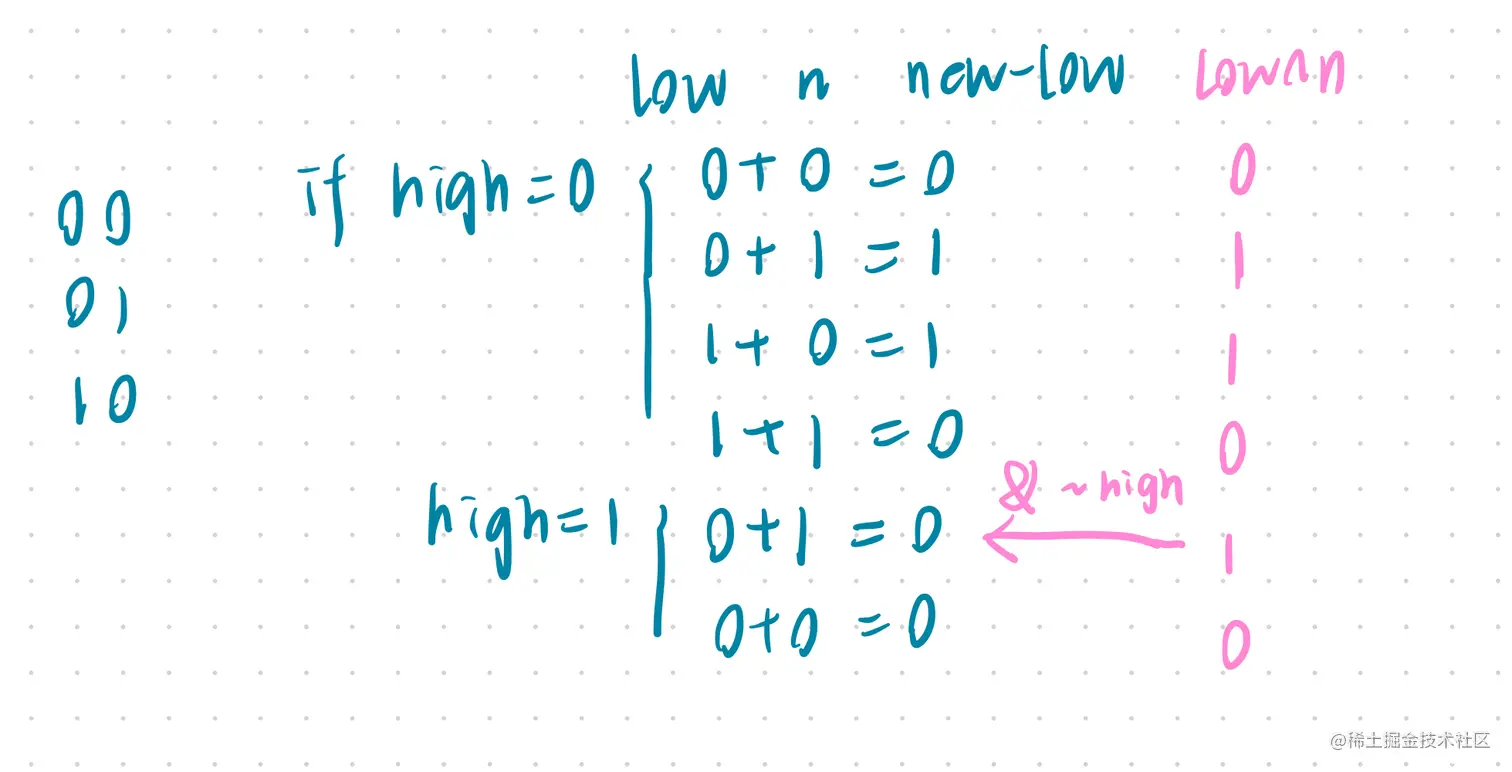 low n new-low low^n
if high=0 0+0=0 0
00
0+1=1 1
01
1+0=1 1
10
1+1=0 0
& ~high
high=1 0+1=0 1
0+0=0 0
@稀土掘金技术社区